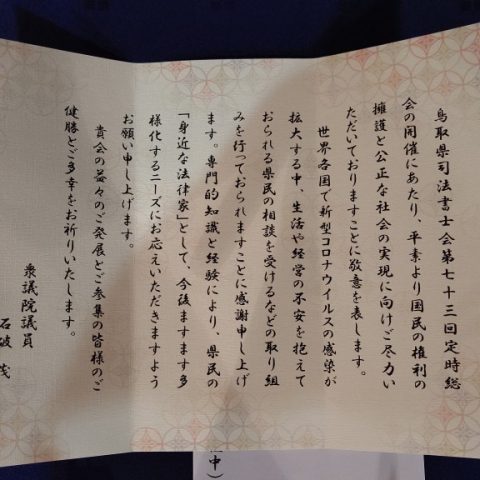 鳥取県司法書士会第七十三回定時総
会の開催にあたり、平素より国民の権利の
擁護と公正な社会の実現に向けご尽力い
ただいておりますことに敬意を表します。
世界各国で新型コロナウイルスの感染が
拡大する中、生活や経営の不安を抱えて
おられる県民の相談を受けるなどの取り組
みを行っておられますことに感謝申し上げ
ます。専門的知識と経験により、県民の
「身近な法律家」として、今後ますます多
様化するニーズにお応えいただきますよう
お願い申し上げます。
貴会の益々のご発展とご参集の皆様のご
健勝とご多幸をお祈りいたします。
衆議院議員
石破 茂
中)